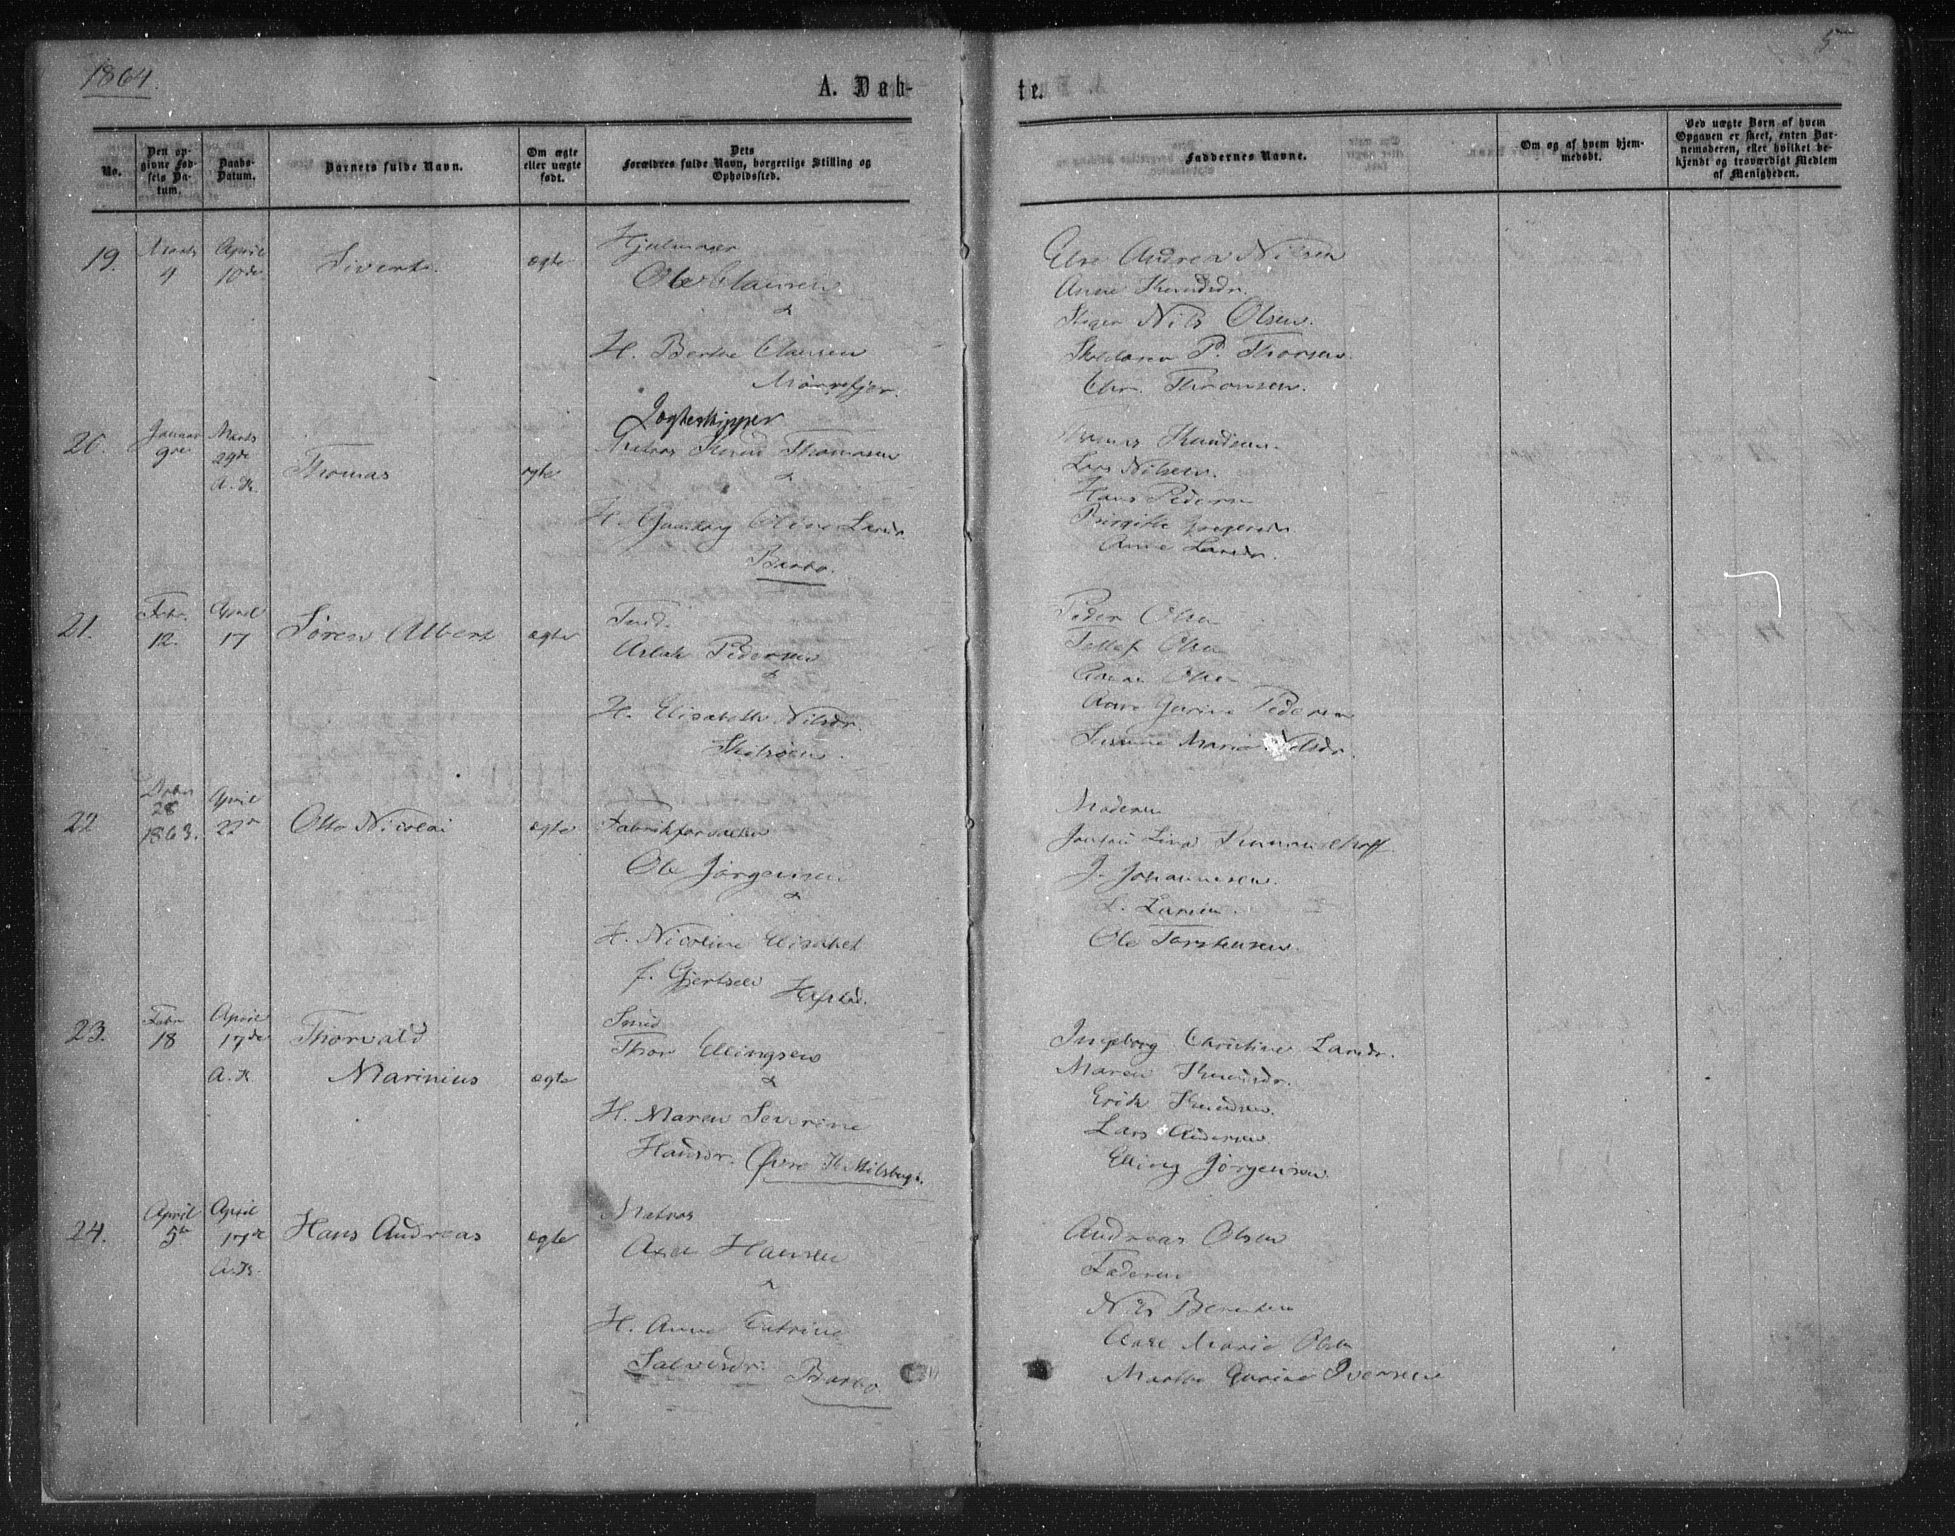 1864.
5
A. Døb-
te.
No.
Den op-
givne Fød-
sels Da-
tum.
Daabs-
Datum.
Barnets fulde Navn.
Om ægte
eller uægte
født.
Dets
Forældres fulde Navn, borgerlige Stilling og
Opholdssted.
Faddernes Navne.
Om og af hvem hjem-
medøbt.
Ved uægte Børn af hvem
Opgaven er skeet, enten Bar-
nemoderen, eller hvilket be-
kjendt og troværdigt Medlem
af Menigheden.
19.
Marts
4
April
10de
Sivert
ægte
Ole Clausen
&
H. Berthe Clausen
Andrea Nilsen
Anne Knudsdr.
Nils Olsen.
P. Thorsen.
Chr. Thomsen.
20.
Januar
9de
Marts
29de
A. K.
Thomas
ægte
Knud Thomasen
&
H. Gunborg Oline Larsdr.
Barbo.
Knudsen.
Lars Nilsen.
Hans Pedersen
Birgitte
Anne Larsdr.
21.
Febr.
12.
April
17
Søren Albert
ægte
Aslak Pedersen
&
H. Elisabeth Nilsdr.
Peder Olsen
Tellef Olsen
Olsen
Anne Gurine Pedersen
Maria Nilsdr.
22
28
1863.
April
22
Otto Nicolai
ægte
Ole Jørgensen
&
H. Nicoline Elisabet
f. Gjertsen
Moderen
J. Johannesen.
L. Larsen.
Ole Torstensen.
23.
Febr
18
April
17de
A. K.
Thorvald
Marinius
ægte
Smed
Thor Ellingsen
&
H. Maren Severine
Hansdr. Øvre
Ingeborg Christine Larsdr.
Maren Knudsdr.
Erik Knudsen.
Lars Andersen
Elling Jørgensen
24.
April
5te
April
17de
A. K.
Hans Andreas
ægte
Matros
Axel Hansen
&
H. Anne Catrine
Salvesdr. Barbo
Andreas Olsen
Faderen
Nils Berntsen
Marie Olsen
Marthe Gurine Iversen